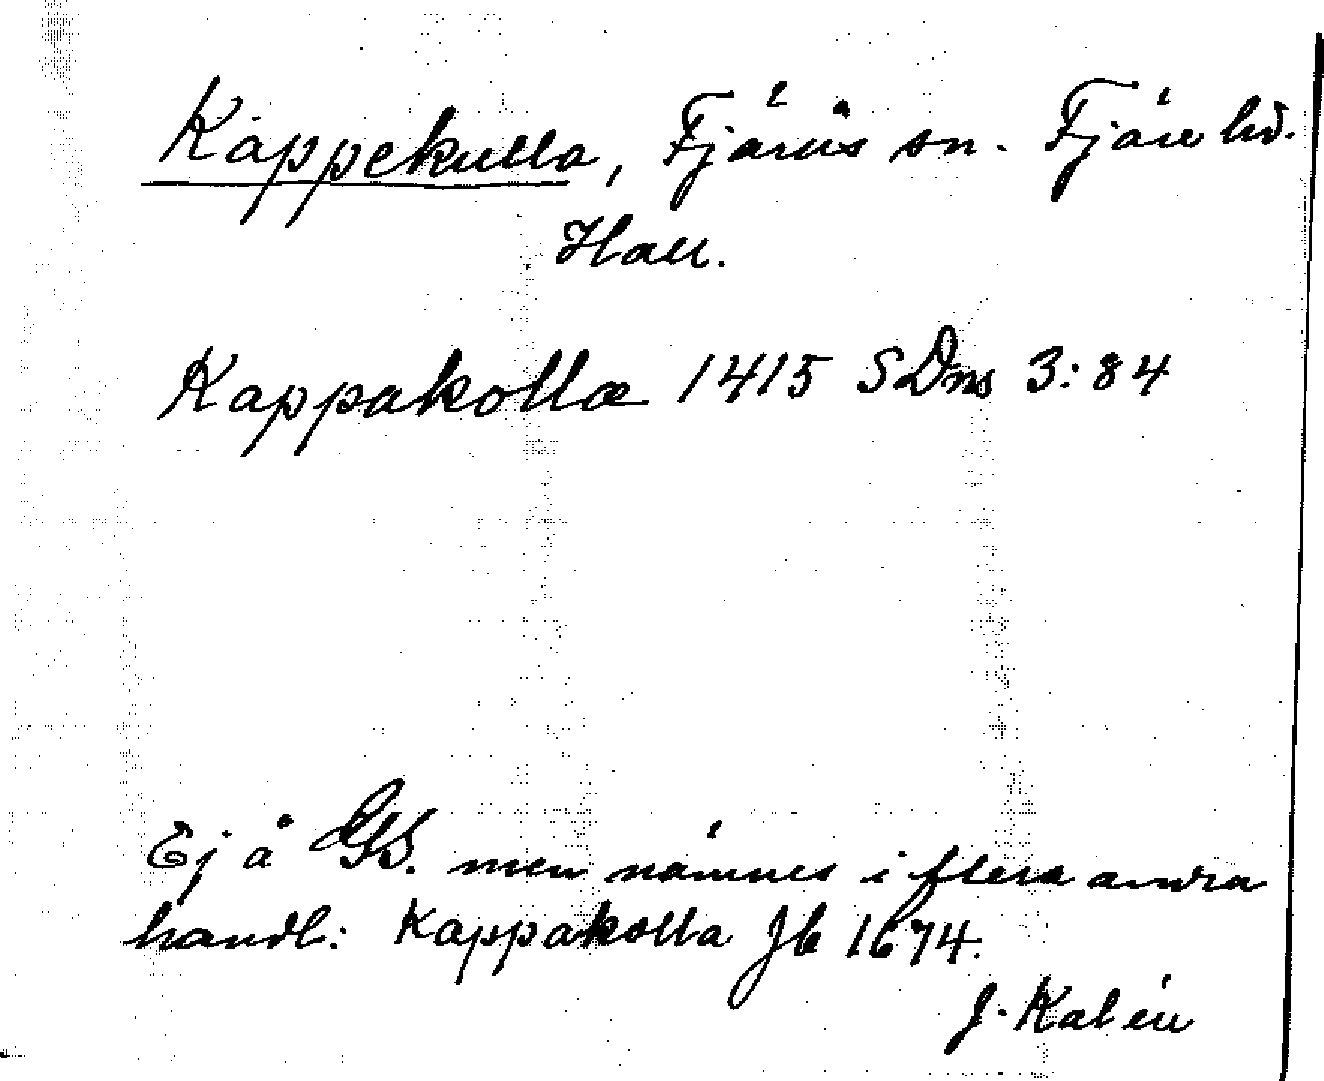 Kappekulla, Fjärås sn. Fjäre hd.
Hall.
Kappakollæ 1415 SDns 3:84
Ej å GK. men nämnes i flera andra
handl: Kappakolla Jb 1674.
J. Kalén